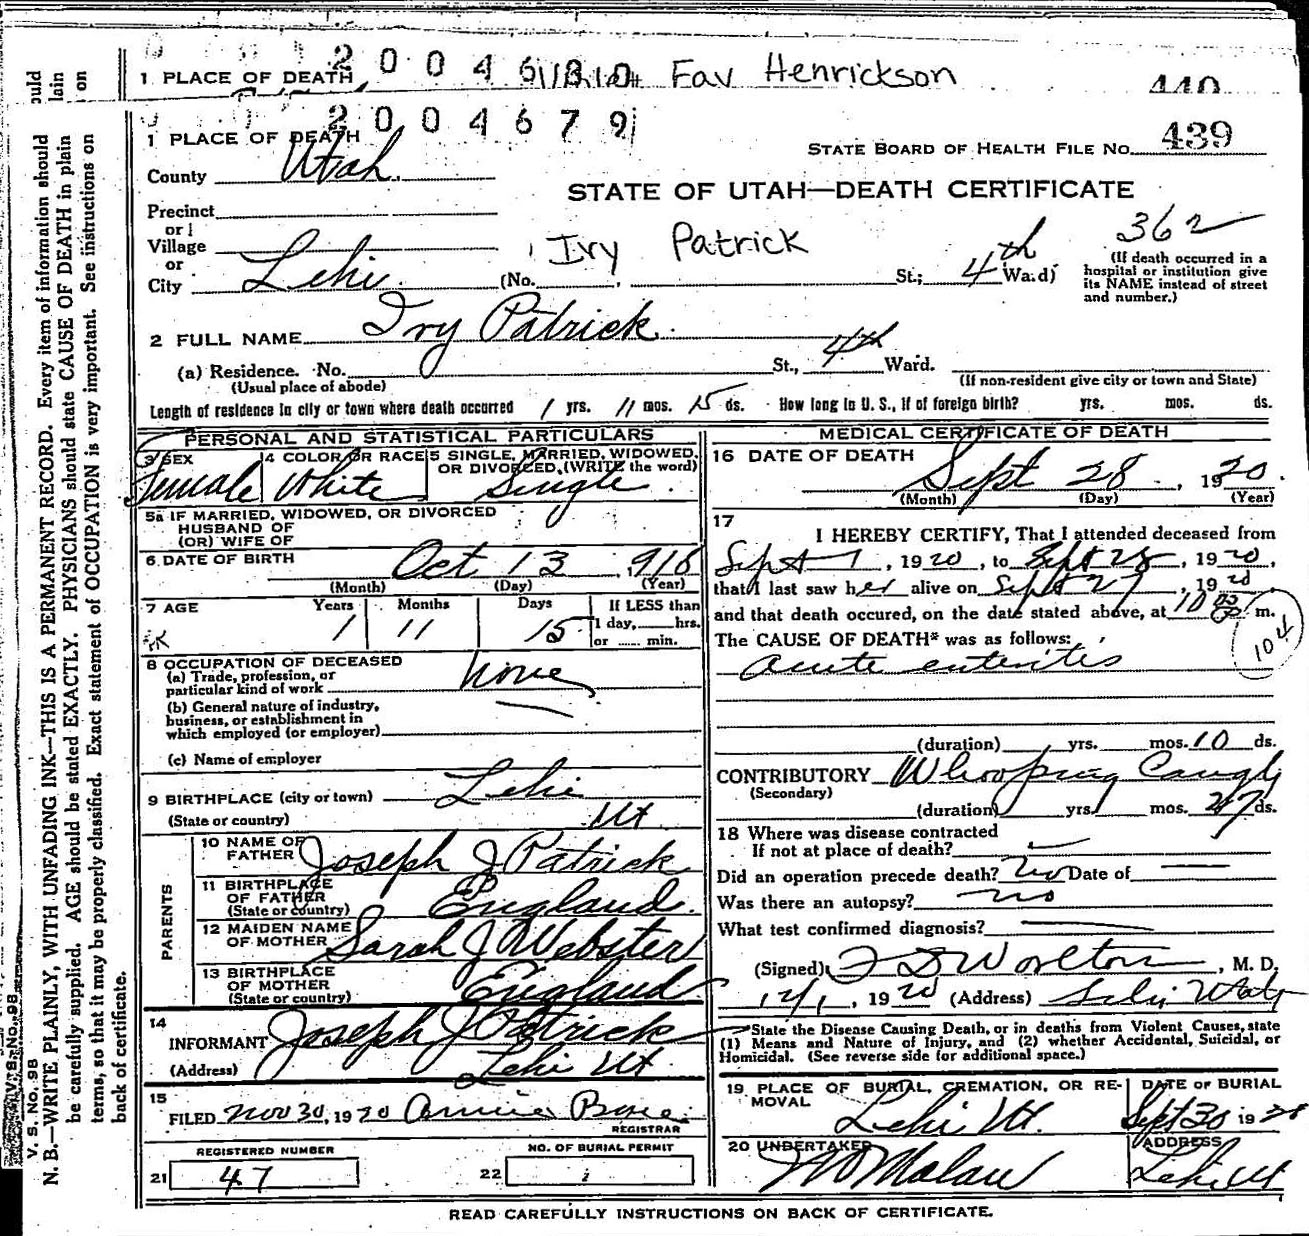 1 PLACE OF DEATH 2 0 0 4 6 Fay Henrickson 440
2 0 0 4 6 7 9
1 PLACE OF DEATH
STATE BOARD OF HEALTH FILE NO. 439
County Utah.
STATE OF UTAH—DEATH CERTIFICATE
Precinct
or
Village
or
City Lehi (No. , St.; 4th Ward)
Ivy Patrick
362
(If death occurred in a
hospital or institution give
its NAME instead of street
and number.)
2 FULL NAME Ivy Patrick
(a) Residence. No. St., 4th Ward.
(Usual place of abode) (If non-resident give city or town and State)
Length of residence in city or town where death occurred 1 yrs. 11 mos. 15 ds. How long in U. S., if of foreign birth? yrs. mos. ds.
PERSONAL AND STATISTICAL PARTICULARS
3 SEX 4 COLOR OR RACE 5 SINGLE, MARRIED, WIDOWED,
OR DIVORCED, (WRITE the word)
Female White Single
5a IF MARRIED, WIDOWED, OR DIVORCED
HUSBAND OF
(OR) WIFE OF
6 DATE OF BIRTH Oct 13 918
(Month) (Day) (Year)
7 AGE Years Months Days If LESS than
1 day, hrs.
or min.
1 11 15
8 OCCUPATION OF DECEASED
(a) Trade, profession, or
particular kind of work none
(b) General nature of industry,
business, or establishment in
which employed (or employer)
(c) Name of employer
9 BIRTHPLACE (city or town) Lehi
(State or country) Ut
PARENTS
10 NAME OF
FATHER Joseph J Patrick
11 BIRTHPLACE
OF FATHER
(State or country) England.
12 MAIDEN NAME
OF MOTHER Sarah J Webster
13 BIRTHPLACE
OF MOTHER
(State or country) England
14
INFORMANT Joseph J Patrick
(Address) Lehi Ut
15
FILED Nov 30, 1920
REGISTRAR
REGISTERED NUMBER
21 47
NO. OF BURIAL PERMIT
22
MEDICAL CERTIFICATE OF DEATH
16 DATE OF DEATH
Sept 28, 1920.
(Month) (Day) (Year)
17
I HEREBY CERTIFY, That I attended deceased from
Sept 1, 1920, to Sept 28, 1920,
that I last saw her alive on Sept 27, 1920
and that death occured, on the date stated above, at 10 m.
The CAUSE OF DEATH* was as follows:
104
acute enteritis
(duration) yrs. mos. 10 ds.
CONTRIBUTORY Whooping Cough
(Secondary)
(duration) yrs. mos. 27 ds.
18 Where was disease contracted
If not at place of death?
Did an operation precede death? no Date of
Was there an autopsy? no
What test confirmed diagnosis?
(Signed) , M. D.
, 1920 (Address) Lehi Utah
State the Disease Causing Death, or in deaths from Violent Causes, state
(1) Means and Nature of Injury, and (2) whether Accidental, Suicidal, or
Homicidal. (See reverse side for additional space.)
19 PLACE OF BURIAL, CREMATION, OR RE-
MOVAL
Lehi Ut.
DATE OF BURIAL
Sept 30 19
20 UNDERTAKER
ADDRESS
Lehi Ut
READ CAREFULLY INSTRUCTIONS ON BACK OF CERTIFICATE.
V. S. No. 98
N. B.—WRITE PLAINLY, WITH UNFADING INK—THIS IS A PERMANENT RECORD. Every item of information should
be carefully supplied. AGE should be stated EXACTLY. PHYSICIANS should state CAUSE OF DEATH in plain
terms, so that it may be properly classified. Exact statement of OCCUPATION is very important. See instructions on
back of certificate.